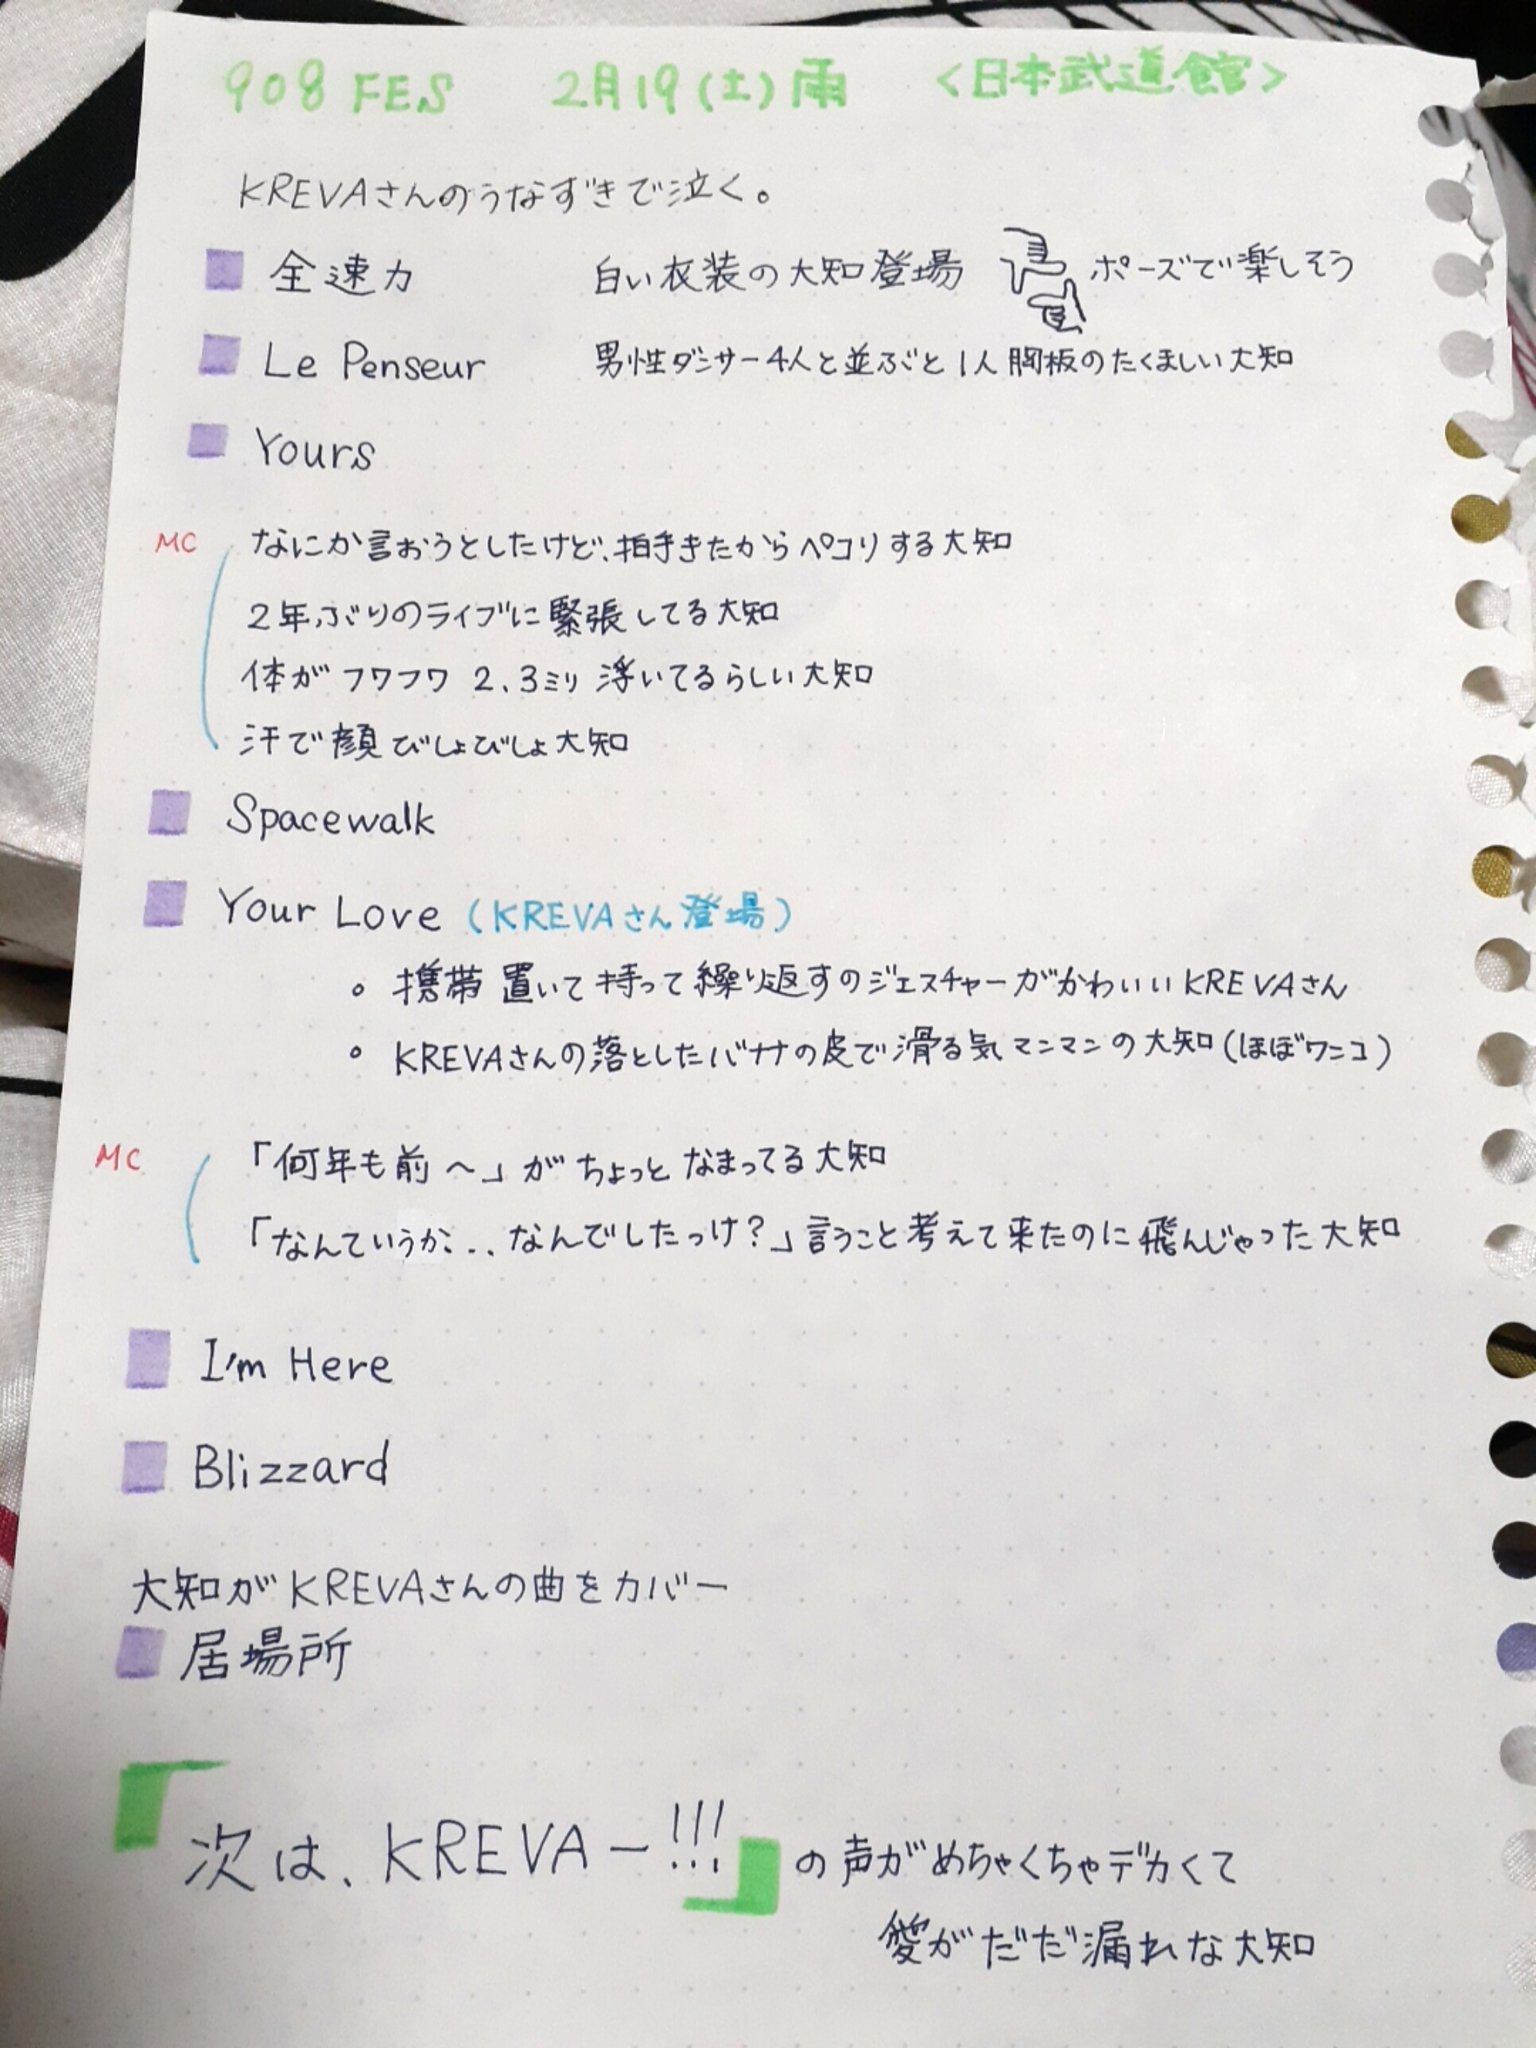 908 FES 2月19(土)雨 <日本武道館>
KREVAさんのうなずきで泣く。
全速力 白い衣装の大知登場 ポーズで楽しそう
Le Penseur 男性ダンサー4人と並ぶと1人胸板のたくましい大知
Yours
MC なにか言おうとしたけど、拍手きたからペコリする大知
2年ぶりのライブに緊張してる大知
体がフワフワ 2、3ミリ 浮いてるらしい大知
汗で顔びしょびしょ大知
Spacewalk
Your Love (KREVAさん登場)
○ 携帯置いて持って繰り返すのジェスチャーがかわいいKREVAさん
○ KREVAさんの落としたバナナの皮で滑る気マンマンの大知(ほぼワンコ)
MC 「何年も前〜」がちょっとなまってる大知
「なんていうか、..なんでしたっけ?」言うこと考えて来たのに飛んじゃった大知
I'm Here
Blizzard
大知がKREVAさんの曲をカバー
居場所
「次は、KREVAー!!!」の声がめちゃくちゃデカくて
愛がだだ漏れな大知